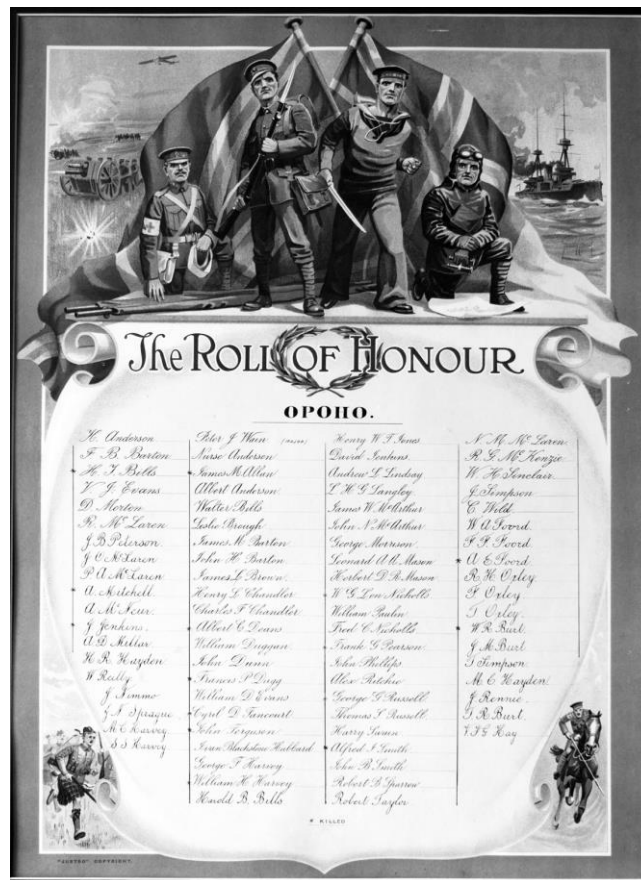 The ROLL OF HONOUR
OPOHO.
H. Anderson
F. B. Barton
* H. J. Bills
V. J. Evans
D. Morton
R. McLaren
J. B. Peterson
J. C. McLaren
P. A. McLaren
* A. Mitchell
A. McFeur
* J. Jenkins
A. D. Millar
H. R. Hayden
W. Reilly
J. Jimmo
Z. F. Sprague
M. C. Harvey
S. S. Harvey
Peter J. Wain
Nurse Anderson
* James M. Allan
Albert Anderson
Walter Bills
Leslie Brough
James W. Barton
John H. Barton
James L. Brown
Henry L. Chandler
Charles F. Chandler
* Albert C. Deans
William Duggan
John Dunn
* Francis P. Dugg
William D. Evans
* Cyril D. Fancourt
* John Ferguson
Blackstow Hubbard
George F. Harvey
* William H. Harvey
Harold B. Bills
Henry W. T. Jones
David Jenkins
Andrew L. Lindsay
L. H. G. Langley
James W. McArthur
John N. McArthur
George Morrison
Leonard A. A. Mason
Herbert D. R. Mason
* W. G. Leon Nicholls
William Paulin
Fred C. Nicholls
* Frank G. Pearson
John Phillips
Alex Ritchie
* George G. Russell
Thomas S. Russell
Harry Swan
* Alfred J. Smith
John B. Smith
Robert B. Sparrow
Robert Taylor
N. M. McLaren
R. G. McKenzie
W. H. Sinclair
J. Simpson
C. Wild
W. A. Foord
F. F. Foord
* A. E. Foord
R. H. Oxley
P. Oxley
T. Oxley
* W. R. Burt
J. M. Burt
G. Simpson
M. C. Hayden
J. Rennie
G. R. Burt
V. F. G. Hay
* KILLED
COPYRIGHT.